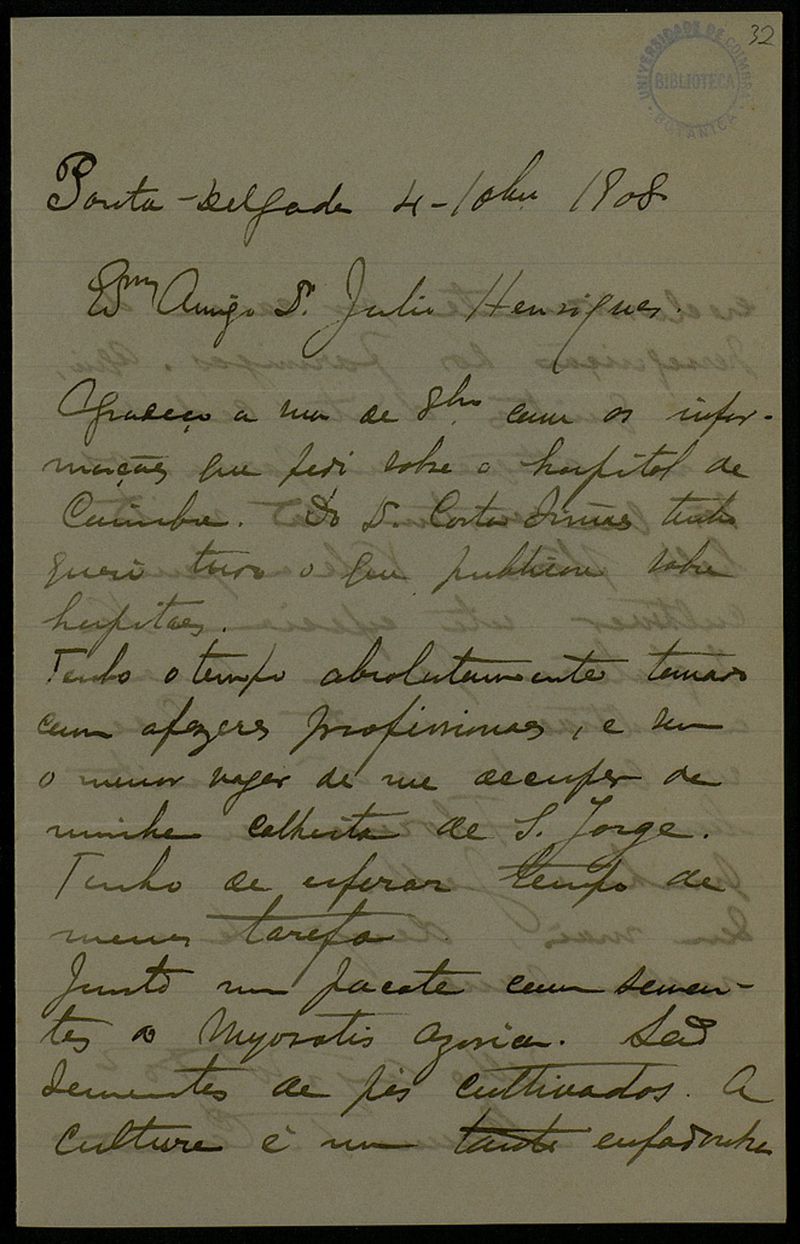 32
UNIVERSIDADE DE COIMBRA
BIBLIOTECA
BOTANICA
Ponta-Delgada 4-10bro 1908
Exmo Amigo Dr. Julio Henriques.
Agradeço a sua de 8bro com os infor-
mações que pedi sobre o hospital de
Coimbra. Do Dr. Costa Simões tenho
quasi tudo o que publicou sobre
hospitaes.
Tenho o tempo absolutamente tomado
com afazeres profissionaes, e sem
o menor vagar de me occupar da
minha colheita de S. Jorge.
Tenho de esperar tempo de
menos tarefa
Junto um pacote com semen-
tes do Myosotis azorica. São
sementes de pés cultivados. A
cultura é um tanto enfadonha